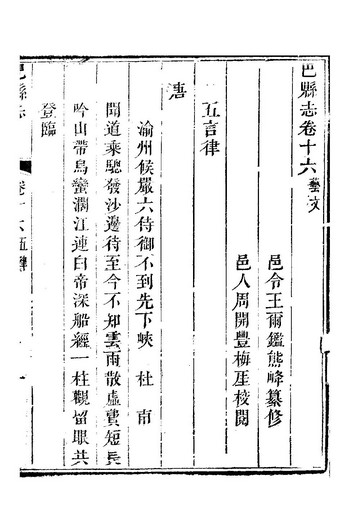 邑縣志卷十六 藝文
邑令王爾鑑熊峰纂修
邑人周開豐梅厓校閱
五言律
唐
渝州候嚴六侍御不到先下峽 杜甫
聞道乘驄發沙邊待至今不知雲雨散虛費短長
吟山帶烏蠻濶江連白帝深船經一柱觀留眼共
登臨
邑縣志 卷十六 五律 一